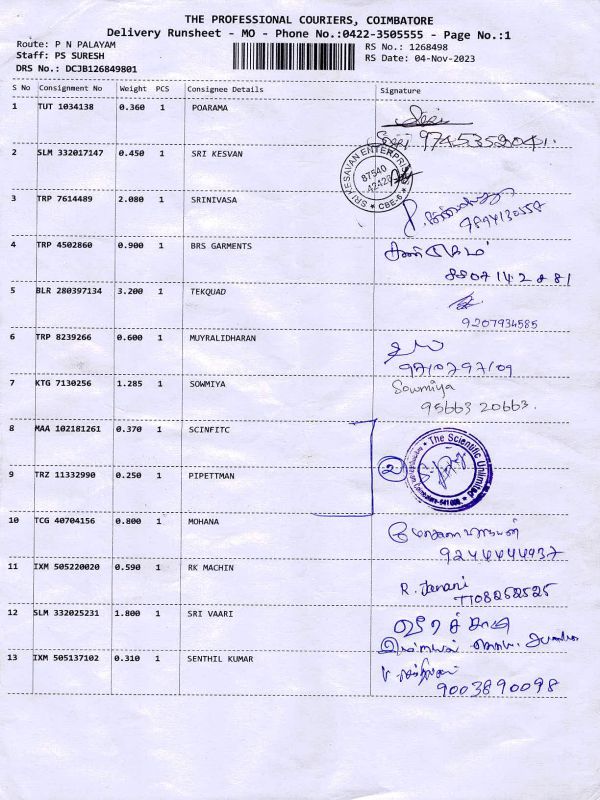 THE PROFESSIONAL COURIERS, COIMBATORE
Delivery Runsheet - MO - Phone No.:0422-3505555 - Page No.:1
Route: P N PALAYAM
Staff: PS SURESH
DRS No.: DCJB126849801
RS No.: 1268498
RS Date: 04-Nov-2023
S No Consignment No Weight PCS Consignee Details Signature
1 TUT 1034138 0.360 1 POARAMA
2 SLM 332017147 0.450 1 SRI KESVAN
SRI KESAVAN ENTERPRIS
87540
42428
★ CBE-6 ★
3 TRP 7614489 2.080 1 SRINIVASA
4 TRP 4502860 0.900 1 BRS GARMENTS
5 BLR 280397134 3.200 1 TEKQUAD
9207934585
6 TRP 8239266 0.600 1 MUYRALIDHARAN
9710797109
7 KTG 7130256 1.285 1 SOWMIYA
Sowmiya
95663 20663.
8 MAA 102181261 0.370 1 SCINFITC
2
The Scientific Unlimited
Coimbatore-641 006
9 TRZ 11332990 0.250 1 PIPETTMAN
10 TCG 40704156 0.800 1 MOHANA
9244444937
11 IXM 505220020 0.590 1 RK MACHIN
R. Janani
7708252525
12 SLM 332025231 1.800 1 SRI VAARI
13 IXM 505137102 0.310 1 SENTHIL KUMAR
9003890098